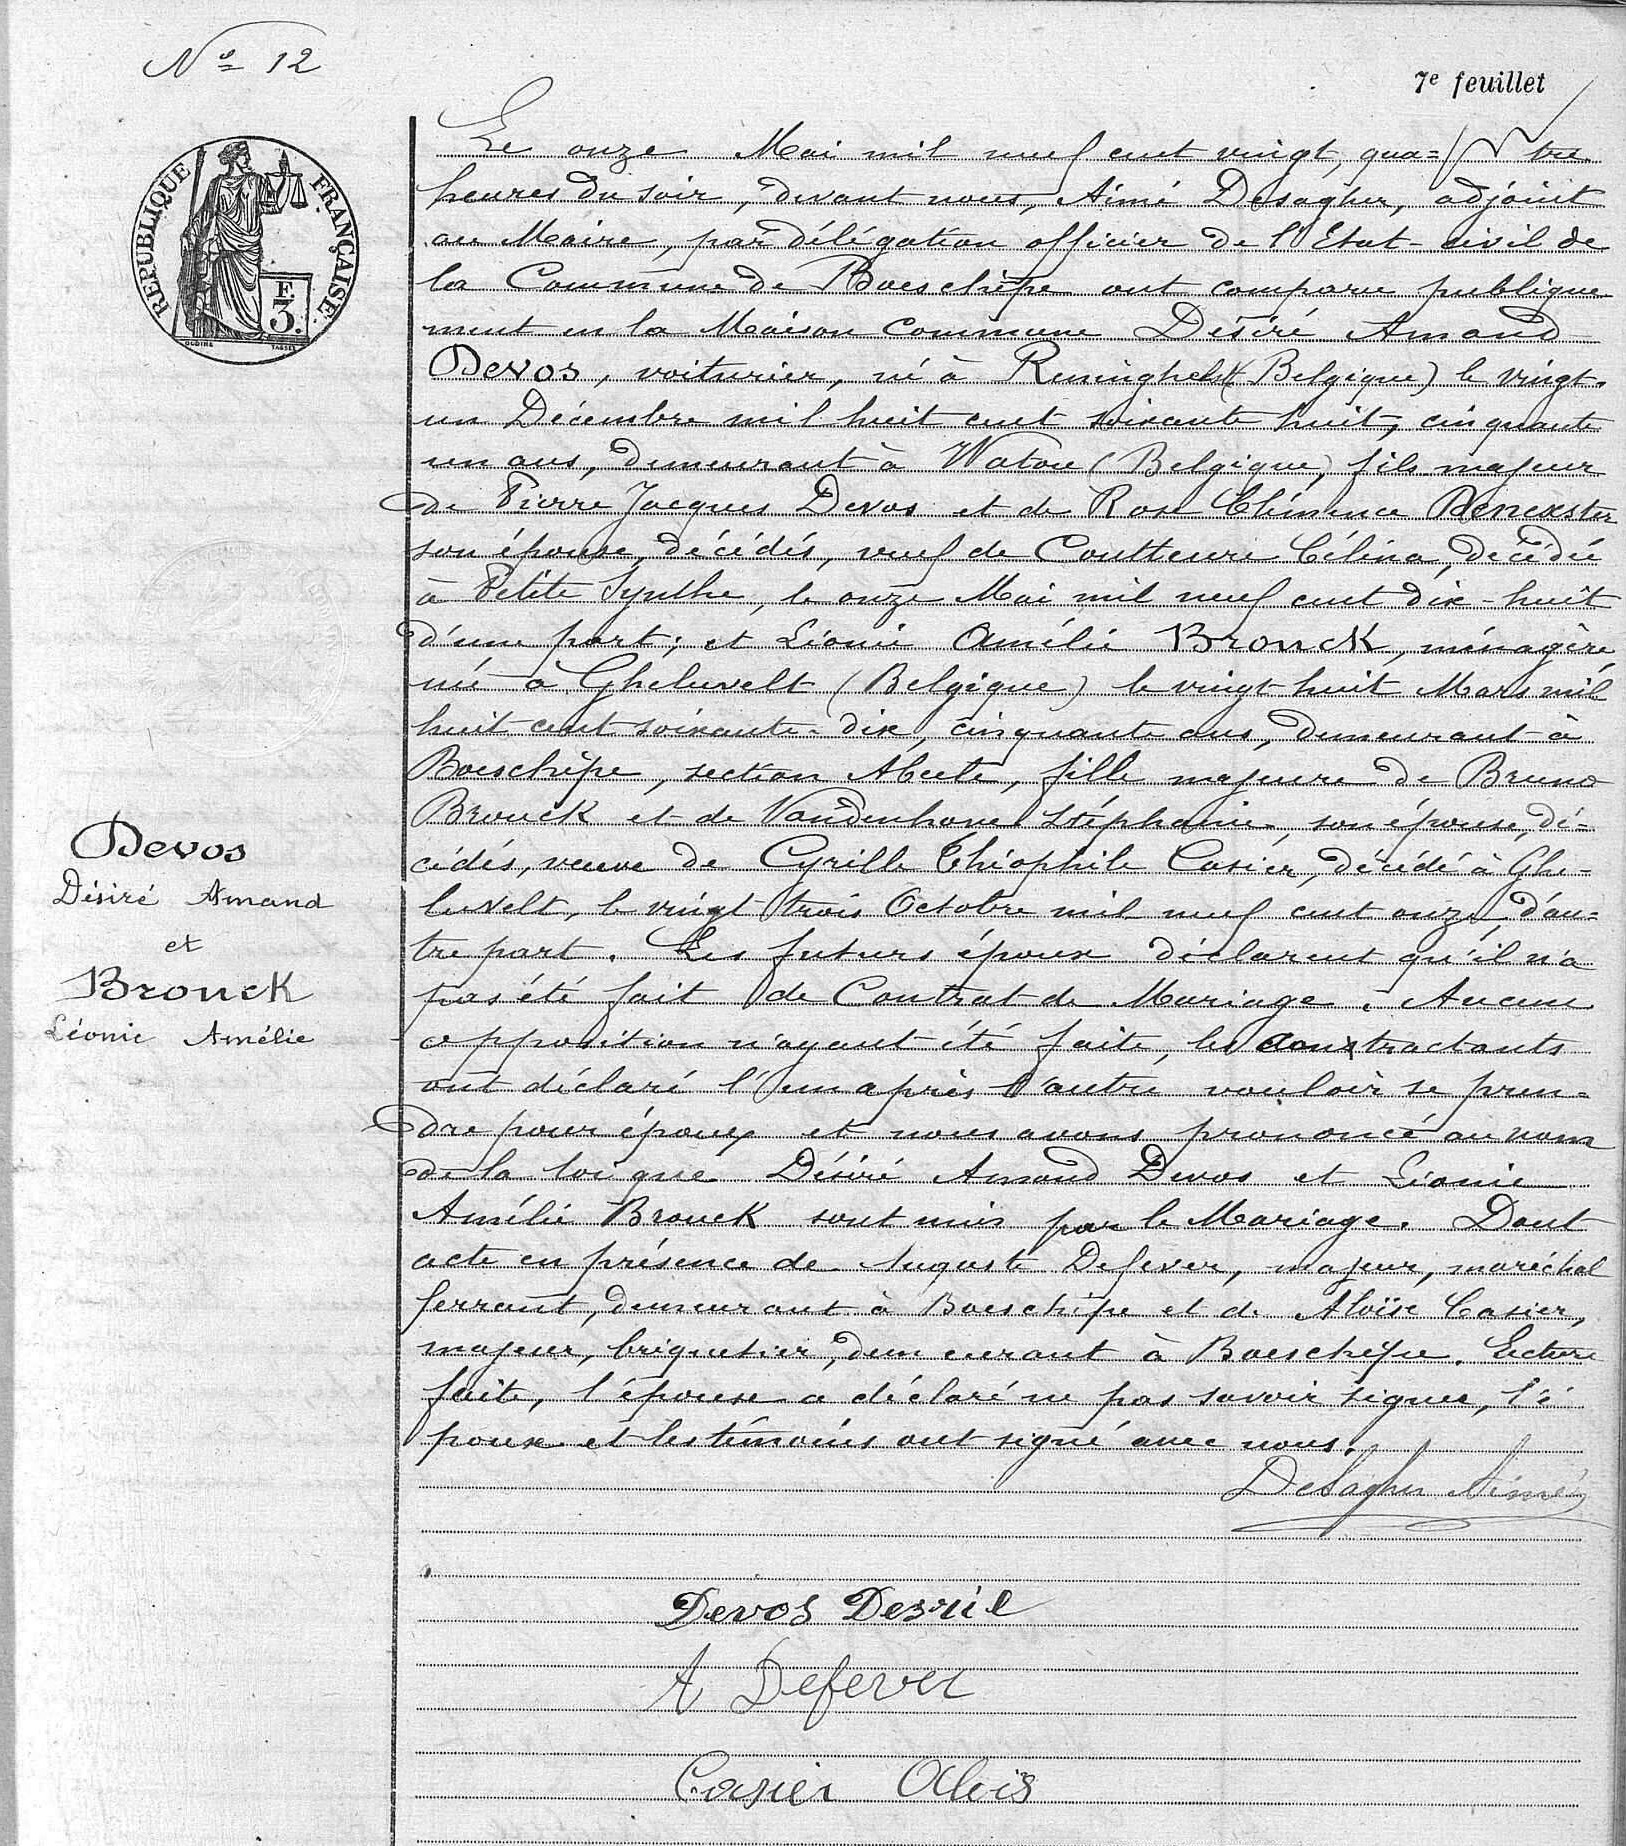 Nº 12
7e feuillet
RÉPUBLIQUE FRANÇAISE
F
3.
Le onze Mai mil neuf cent vingt, qua=tre
heures du soir, devant nous, Aimé Desagher, adjoint
au Maire, par délégation officier de l'Etat-civil de
la Commune de Boeschêpe ont comparu publique
ment en la Maison Commune Désiré Amand
Devos, voiturier, né à Reninghelst (Belgique) le vingt-
un Décembre mil huit cent soixante huit, cinquante
un ans, demeurant à Watou (Belgique) fils majeur
de Pierre Jacques Devos et de Rose Clémence Denexster
son épouse, décédés, veuf de Coutteure Célina, décédée
à Petite Synthe, le onze Mai mil neuf cent dix-huit
d'une part; et Léonie Amélie Bronck, ménagère
née à Gheluvelt (Belgique) le vingt huit Mars mil
huit cent soixante-dix, cinquante ans, demeurant à
Boeschêpe, section Abeele, fille majeure de Bruno
Bronck et de Vandenhove Stéphanie, son épouse, dé-
cédés, veuve de Cyrille Théophile Casier, décédé à Ghe-
luvelt, le vingt trois Octobre mil neuf cent onze, d'au=
tre part. Les futurs époux déclarent qu'il n'a
pas été fait de Contrat de Mariage. Aucune
opposition n'ayant été faite, les contractants
ont déclaré l'un après l'autre vouloir se pren-
dre pour époux et nous avons prononcé au nom
de la loi que Désiré Amand Devos et Léonie
Amélie Bronck sont unis par le Mariage. Dont
acte en présence de Auguste Defever, majeur, maréchal
ferrant, demeurant à Boeschêpe et de Aloïse Casier,
majeur, briquetier, demeurant à Boeschêpe. Lecture
faite, l'épouse a déclaré ne pas savoir signer, l'é
poux et les témoins ont signé avec nous.
Devos
Désiré Amand
et
Bronck
Léonie Amélie
Desagher Aimé
Devos Desriè
A Defever
Casier Alois